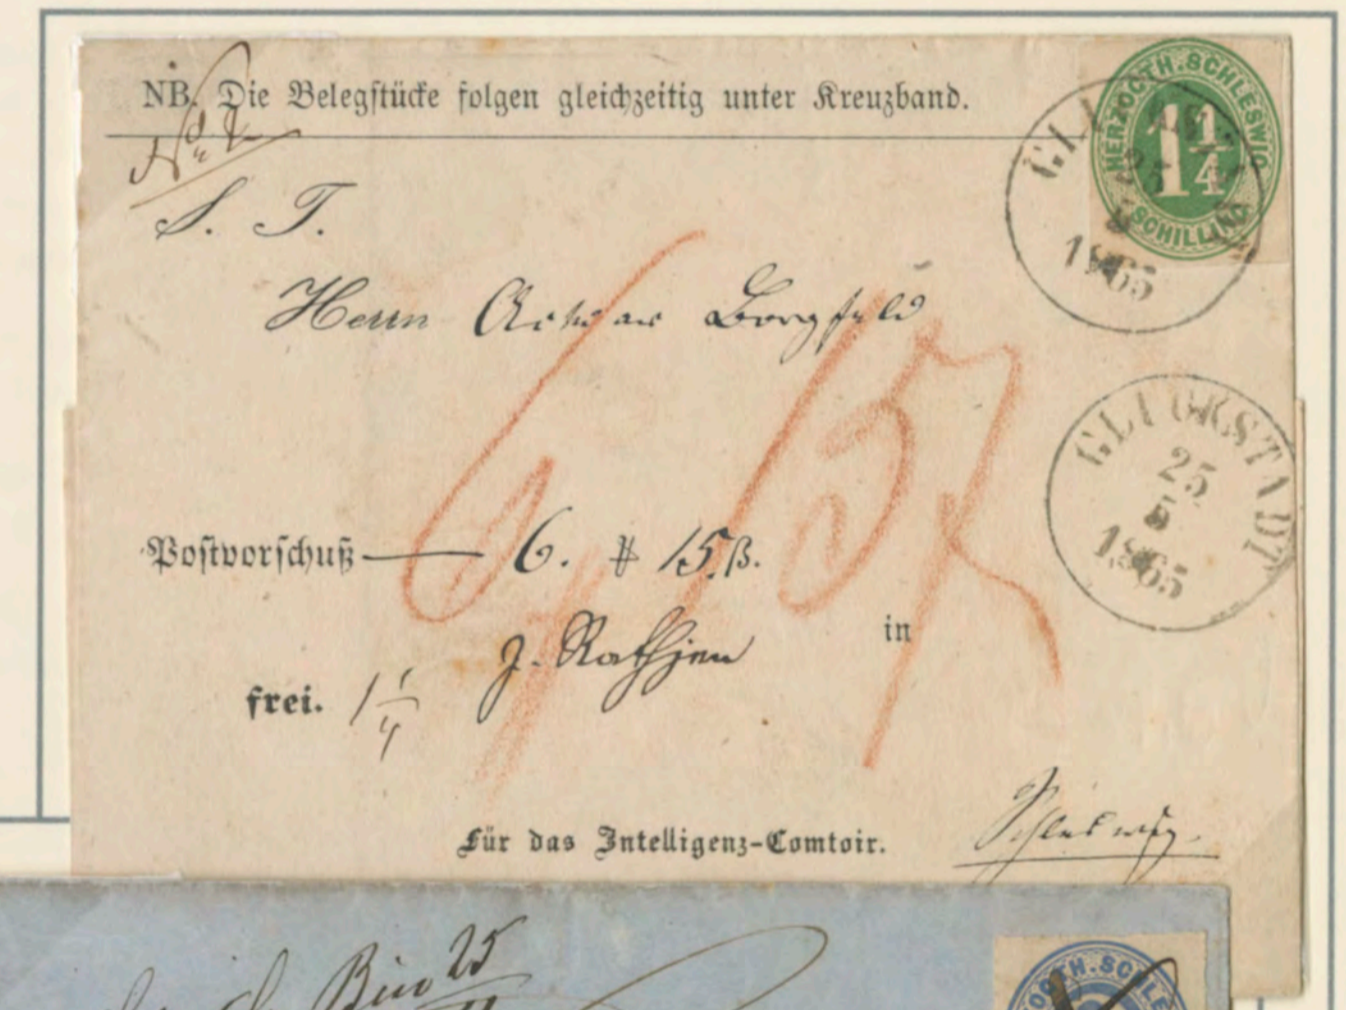 NB. Die Belegstücke folgen gleichzeitig unter Kreuzband.
HERZOGTH. SCHLESWIG
1 1/4
SCHILLING
25
1865
S. T.
Herrn Borgfeld
GLUCKSTADT
25
5
1865
Postvorschuß — 6. 15 ß.
J. Rathjen
in
frei. 1 1/4
Für das Intelligenz-Comtoir.
Schleswig.
25